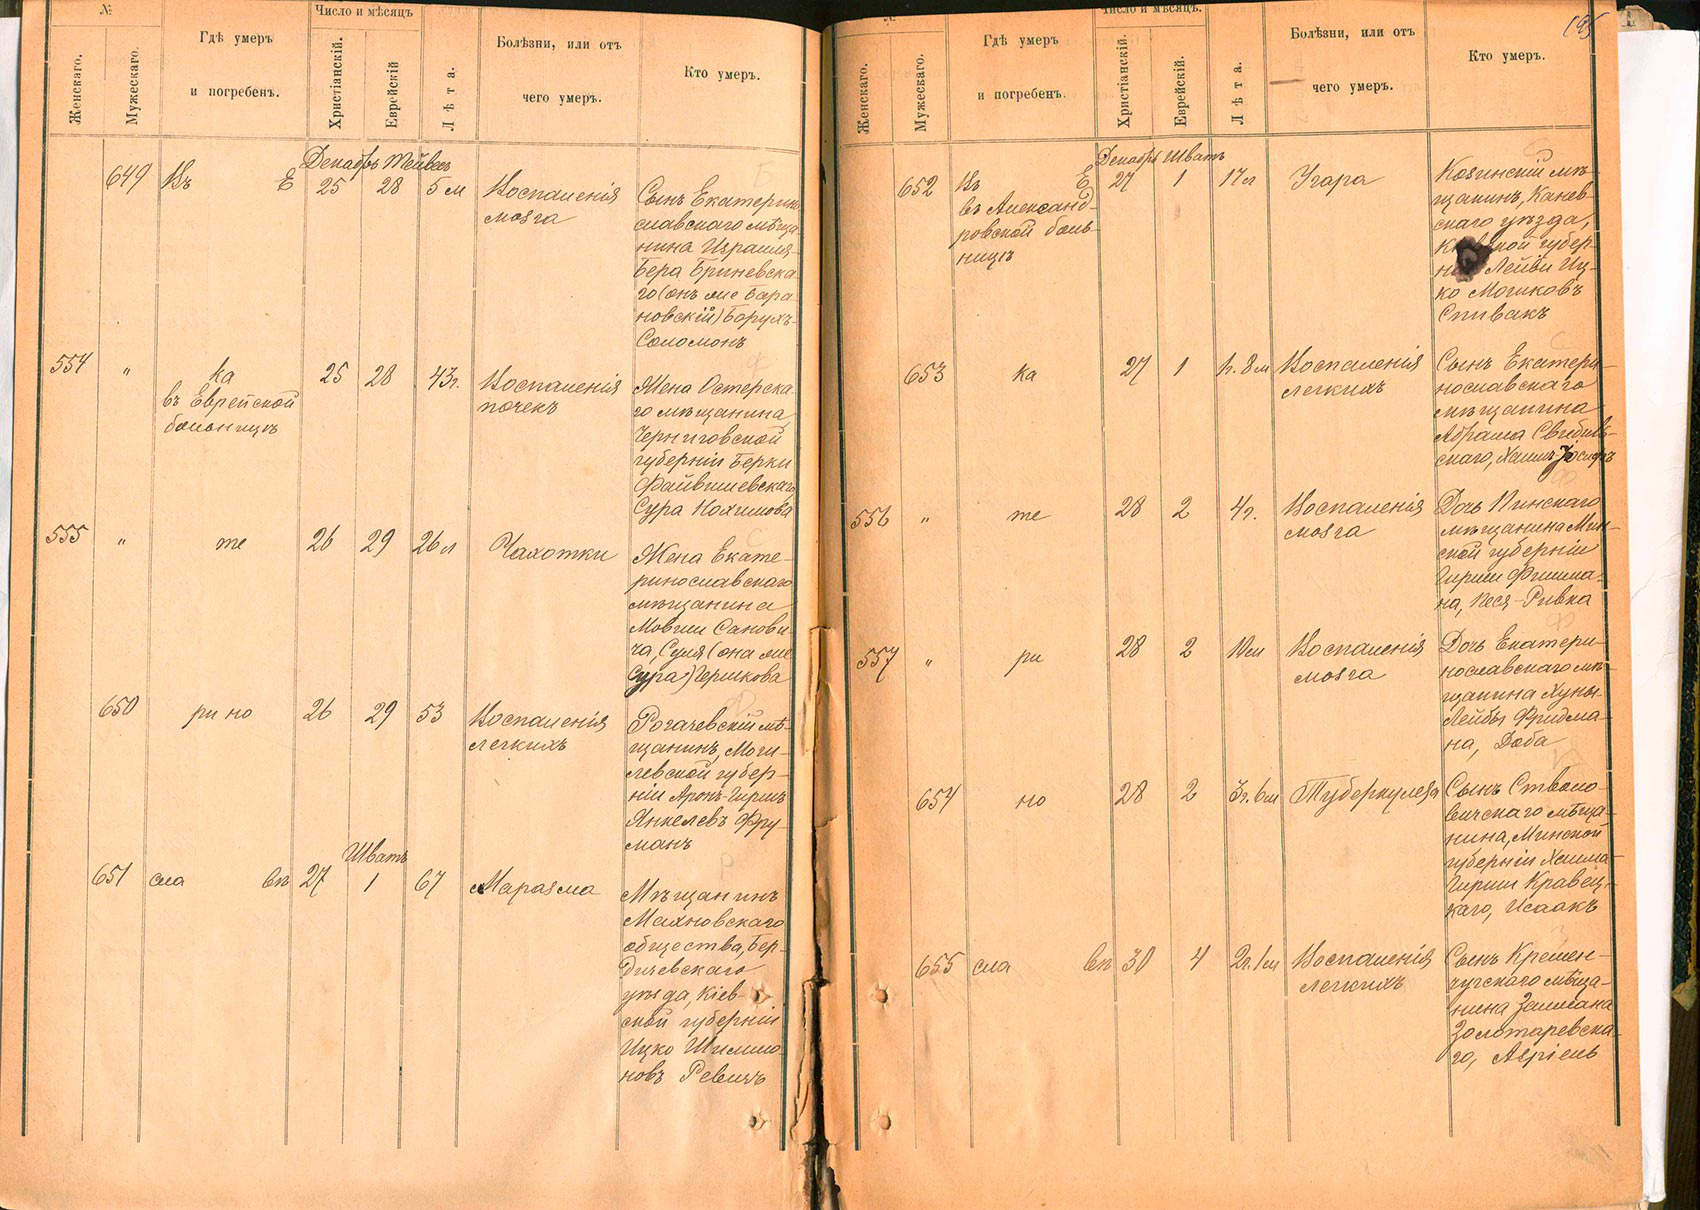 №
Число и мѣсяцъ
Женскаго.
Мужескаго.
Гдѣ умеръ
и погребенъ.
Христіанскій.
Еврейскій
Лѣта.
Болѣзни, или отъ
чего умеръ.
Кто умеръ.
Декабрь Тейвесъ
649 Въ Е 25 28 5 м Воспаленія
мозга
Сынъ Екатерино
славскаго мѣща
нина Израиля-
Бера Бриневска-
го (онъ же Бара
новскій) Борухъ-
Соломонъ
554 " ка 25 28 43 г. Воспаленія
въ Еврейской
больницѣ
почекъ
Жена Остерска-
го мѣщанина
Черниговской
губерніи Берки
Файвишевскаго,
Сура Нохимова
555 " те 26 29 26 л Чахотки
Жена Екате-
ринославскаго
мѣщанина
Мовши Санови-
ча, Суля (она же
Сура) Гершкова
650 ри но 26 29 53 Воспаленія
легкихъ
Рогачевскій мѣ-
щанинъ, Моги-
левской губер-
ніи Аронъ-Гиршъ
Янкелевъ Фру-
манъ
Шватъ
651 сла вѣ 27 1 67 Маразма
Мѣщанинъ
Махновскаго
общества, Бер-
дичевскаго
уѣзда, Кіев-
ской губерніи
Ицко Шимшо-
новъ Ревичъ
195
№
Число и мѣсяцъ.
Женскаго.
Мужескаго.
Гдѣ умеръ
и погребенъ.
Христіанскій.
Еврейскій.
Лѣта.
Болѣзни, или отъ
чего умеръ.
Кто умеръ.
Декабрь Шватъ
652 Въ Е 27 1 17 л Угара
въ Александ-
ровской боль-
ницѣ
Козинскій мѣ-
щанинъ, Канев-
скаго уѣзда,
губер-
Лейви Иц-
ко Мошковъ
Спивакъ
653 ка 27 1 1 г. 8 м Воспаленія
легкихъ
Сынъ Екатери-
нославскаго
мѣщанина
Абрама Свѣдив-
скаго, Хаимъ-Іосифъ
556 " те 28 2 4 г. Воспаленія
мозга
Дочь Пинскаго
мѣщанина Мин-
ской губерніи
Гирши Фишма-
на, Песя-Ривка
557 " ри 28 2 10 м Воспаленія
мозга
Дочь Екатери-
нославскаго мѣ-
щанина Хуны-
Лейбы Фридма-
на, Доба
654 но 28 2 3 г. 6 м Туберкулеза
Сынъ Стволо-
вичскаго мѣща-
нина, Минской
губерніи Хаима-
Гирши Кравец-
каго, Исаакъ
655 сла вѣ 30 4 2 г. 1 м Воспаленія
легкихъ
Сынъ Кремен-
чугскаго мѣща-
нина Залмана
Золотаревска-
го, Азріель